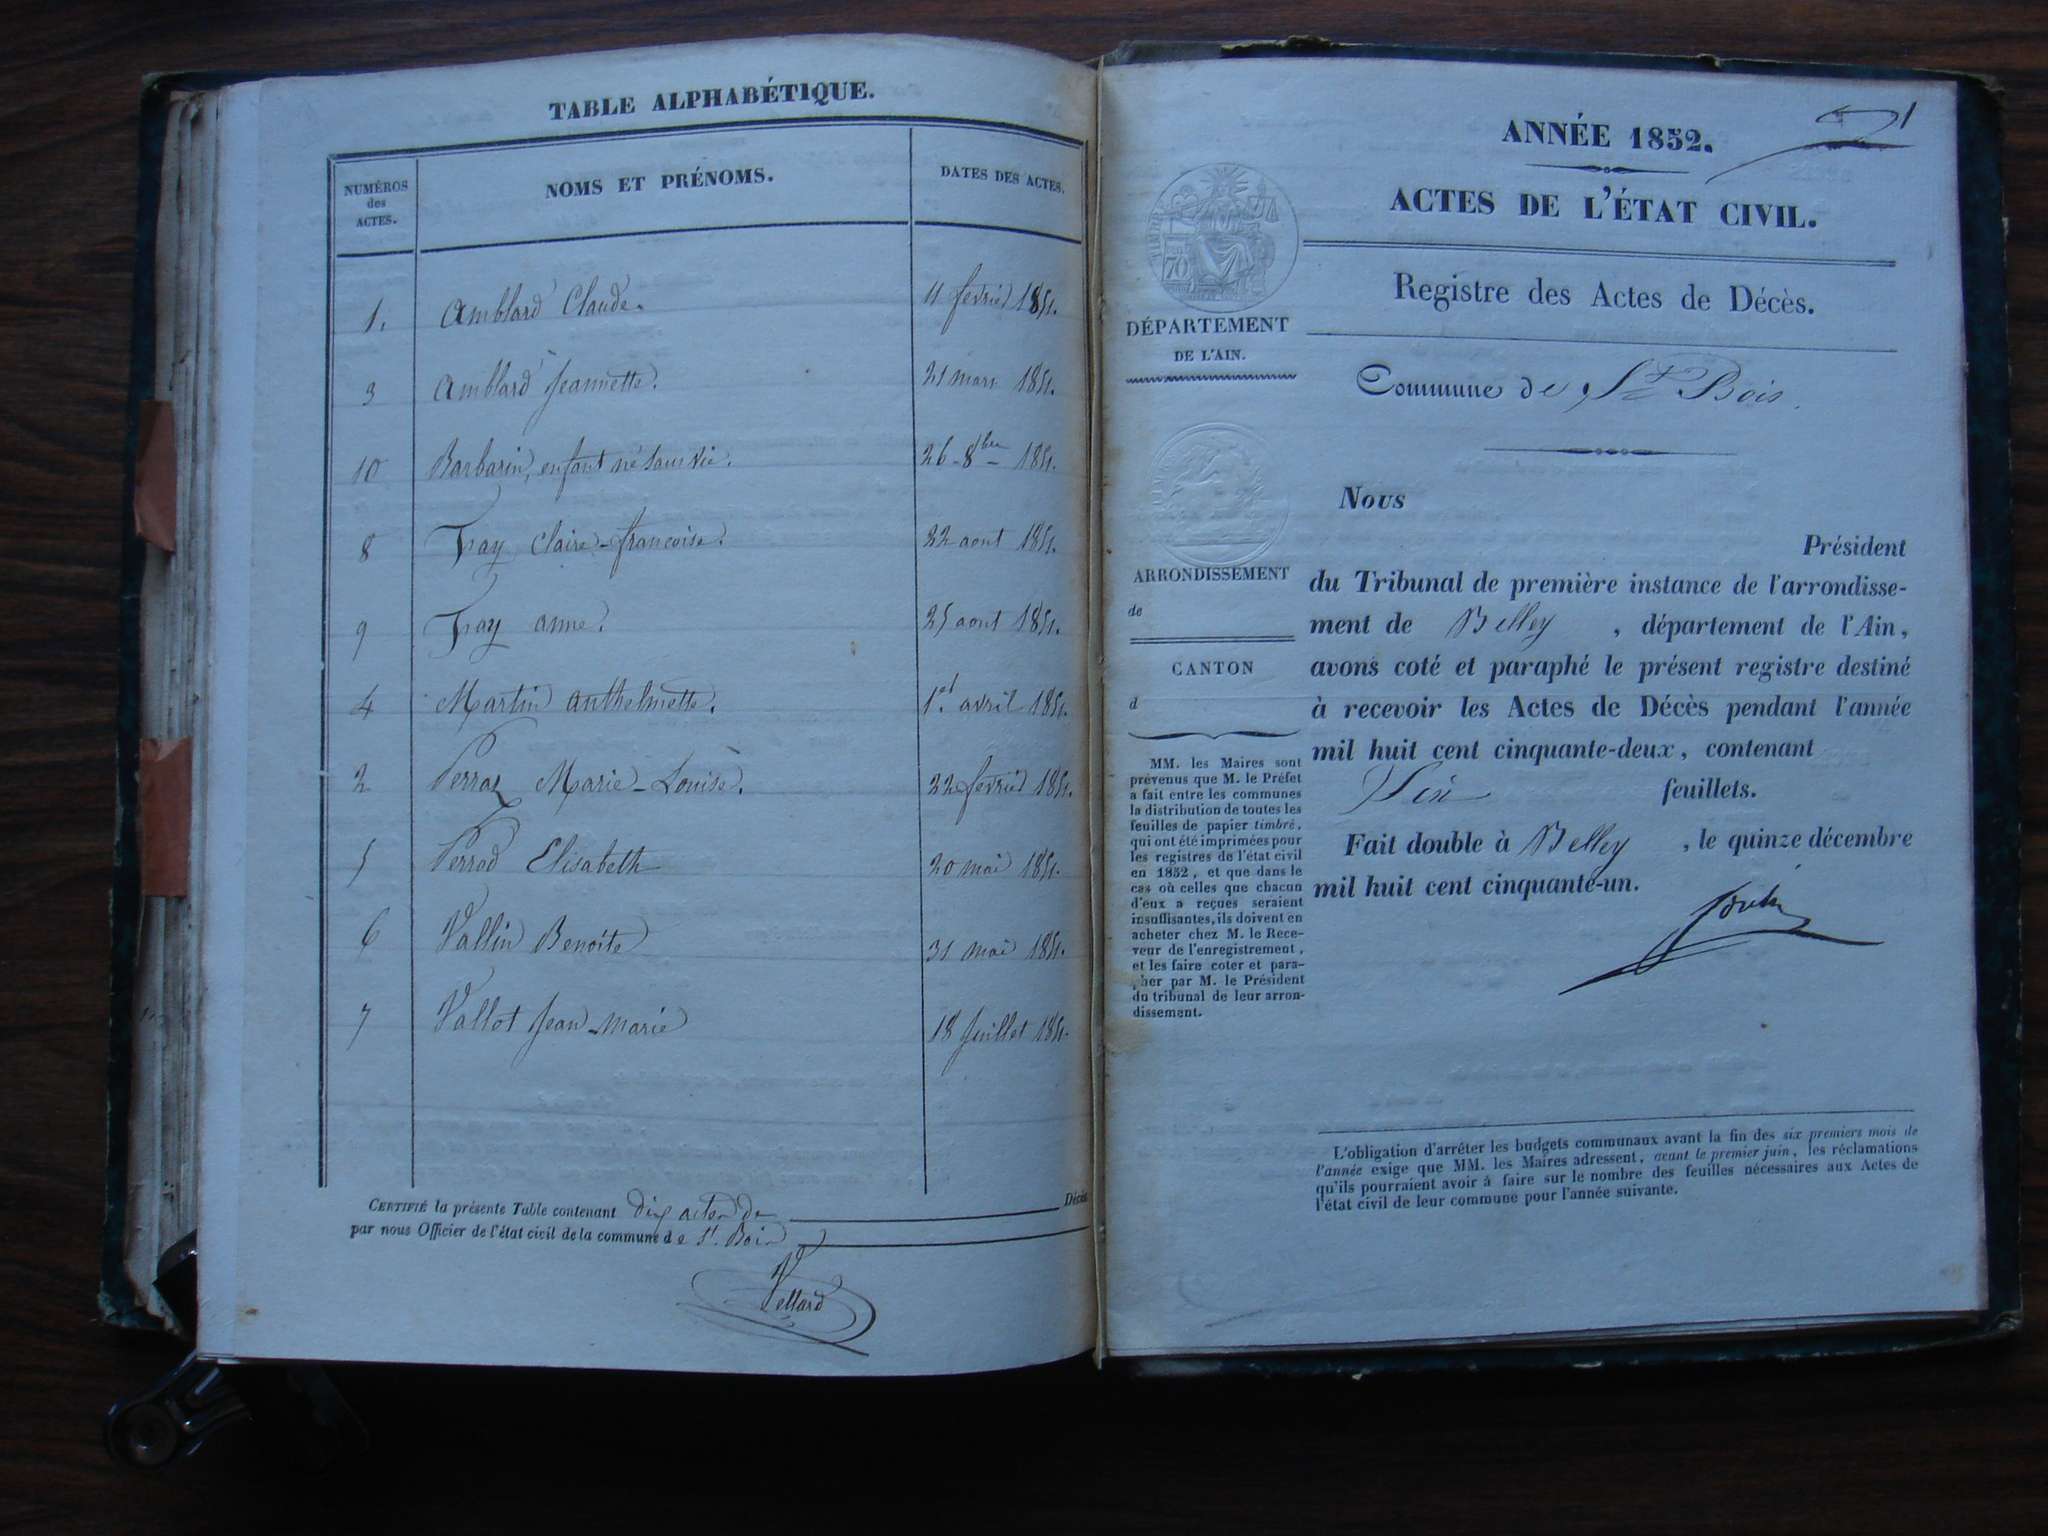 TABLE ALPHABÉTIQUE.
NUMÉROS des ACTES.
NOMS ET PRÉNOMS.
DATES DES ACTES.
1. Amblard Claude. 11 fevrier 1851.
3 Amblard Jeannette. 21 mars 1851.
10 Barbarin, enfant né sans vie. 26 - 8bre - 1851.
8 Fray Claire-francoise. 22 aout 1851.
9 Fray anne. 25 aout 1851.
4 Martin anthelmette. 1er avril 1851.
2 Perraz Marie-Louise. 22 fevrier 1851.
5 Perrod Elisabeth 20 mai 1851.
6 Vallin Benoite 31 mai 1851.
7 Vallot Jean-Marie 18 Juillet 1851.
CERTIFIÉ la présente Table contenant dix actes de Décès
par nous Officier de l'état civil de la commune de St. Bois
Vellard
1
ANNÉE 1852.
ACTES DE L'ÉTAT CIVIL.
Registre des Actes de Décès.
TIMBRE
70
DÉPARTEMENT
DE L'AIN.
ARRONDISSEMENT
de
CANTON
d
MM. les Maires sont
prévenus que M. le Préfet
a fait entre les communes
la distribution de toutes les
feuilles de papier timbré,
qui ont été imprimées pour
les registres de l'état civil
en 1852, et que dans le
cas où celles que chacun
d'eux a reçues seraient
insuffisantes, ils doivent en
acheter chez M. le Rece-
veur de l'enregistrement,
et les faire coter et para-
pher par M. le Président
du tribunal de leur arron-
dissement.
Commune de St Bois.
Nous
Président
du Tribunal de première instance de l'arrondisse-
ment de Belley, département de l'Ain,
avons coté et paraphé le présent registre destiné
à recevoir les Actes de Décès pendant l'année
mil huit cent cinquante-deux, contenant
Six feuillets.
Fait double à Belley, le quinze décembre
mil huit cent cinquante-un.
L'obligation d'arrêter les budgets communaux avant la fin des six premiers mois de
l'année exige que MM. les Maires adressent, avant le premier juin, les réclamations
qu'ils pourraient avoir à faire sur le nombre des feuilles nécessaires aux Actes de
l'état civil de leur commune pour l'année suivante.